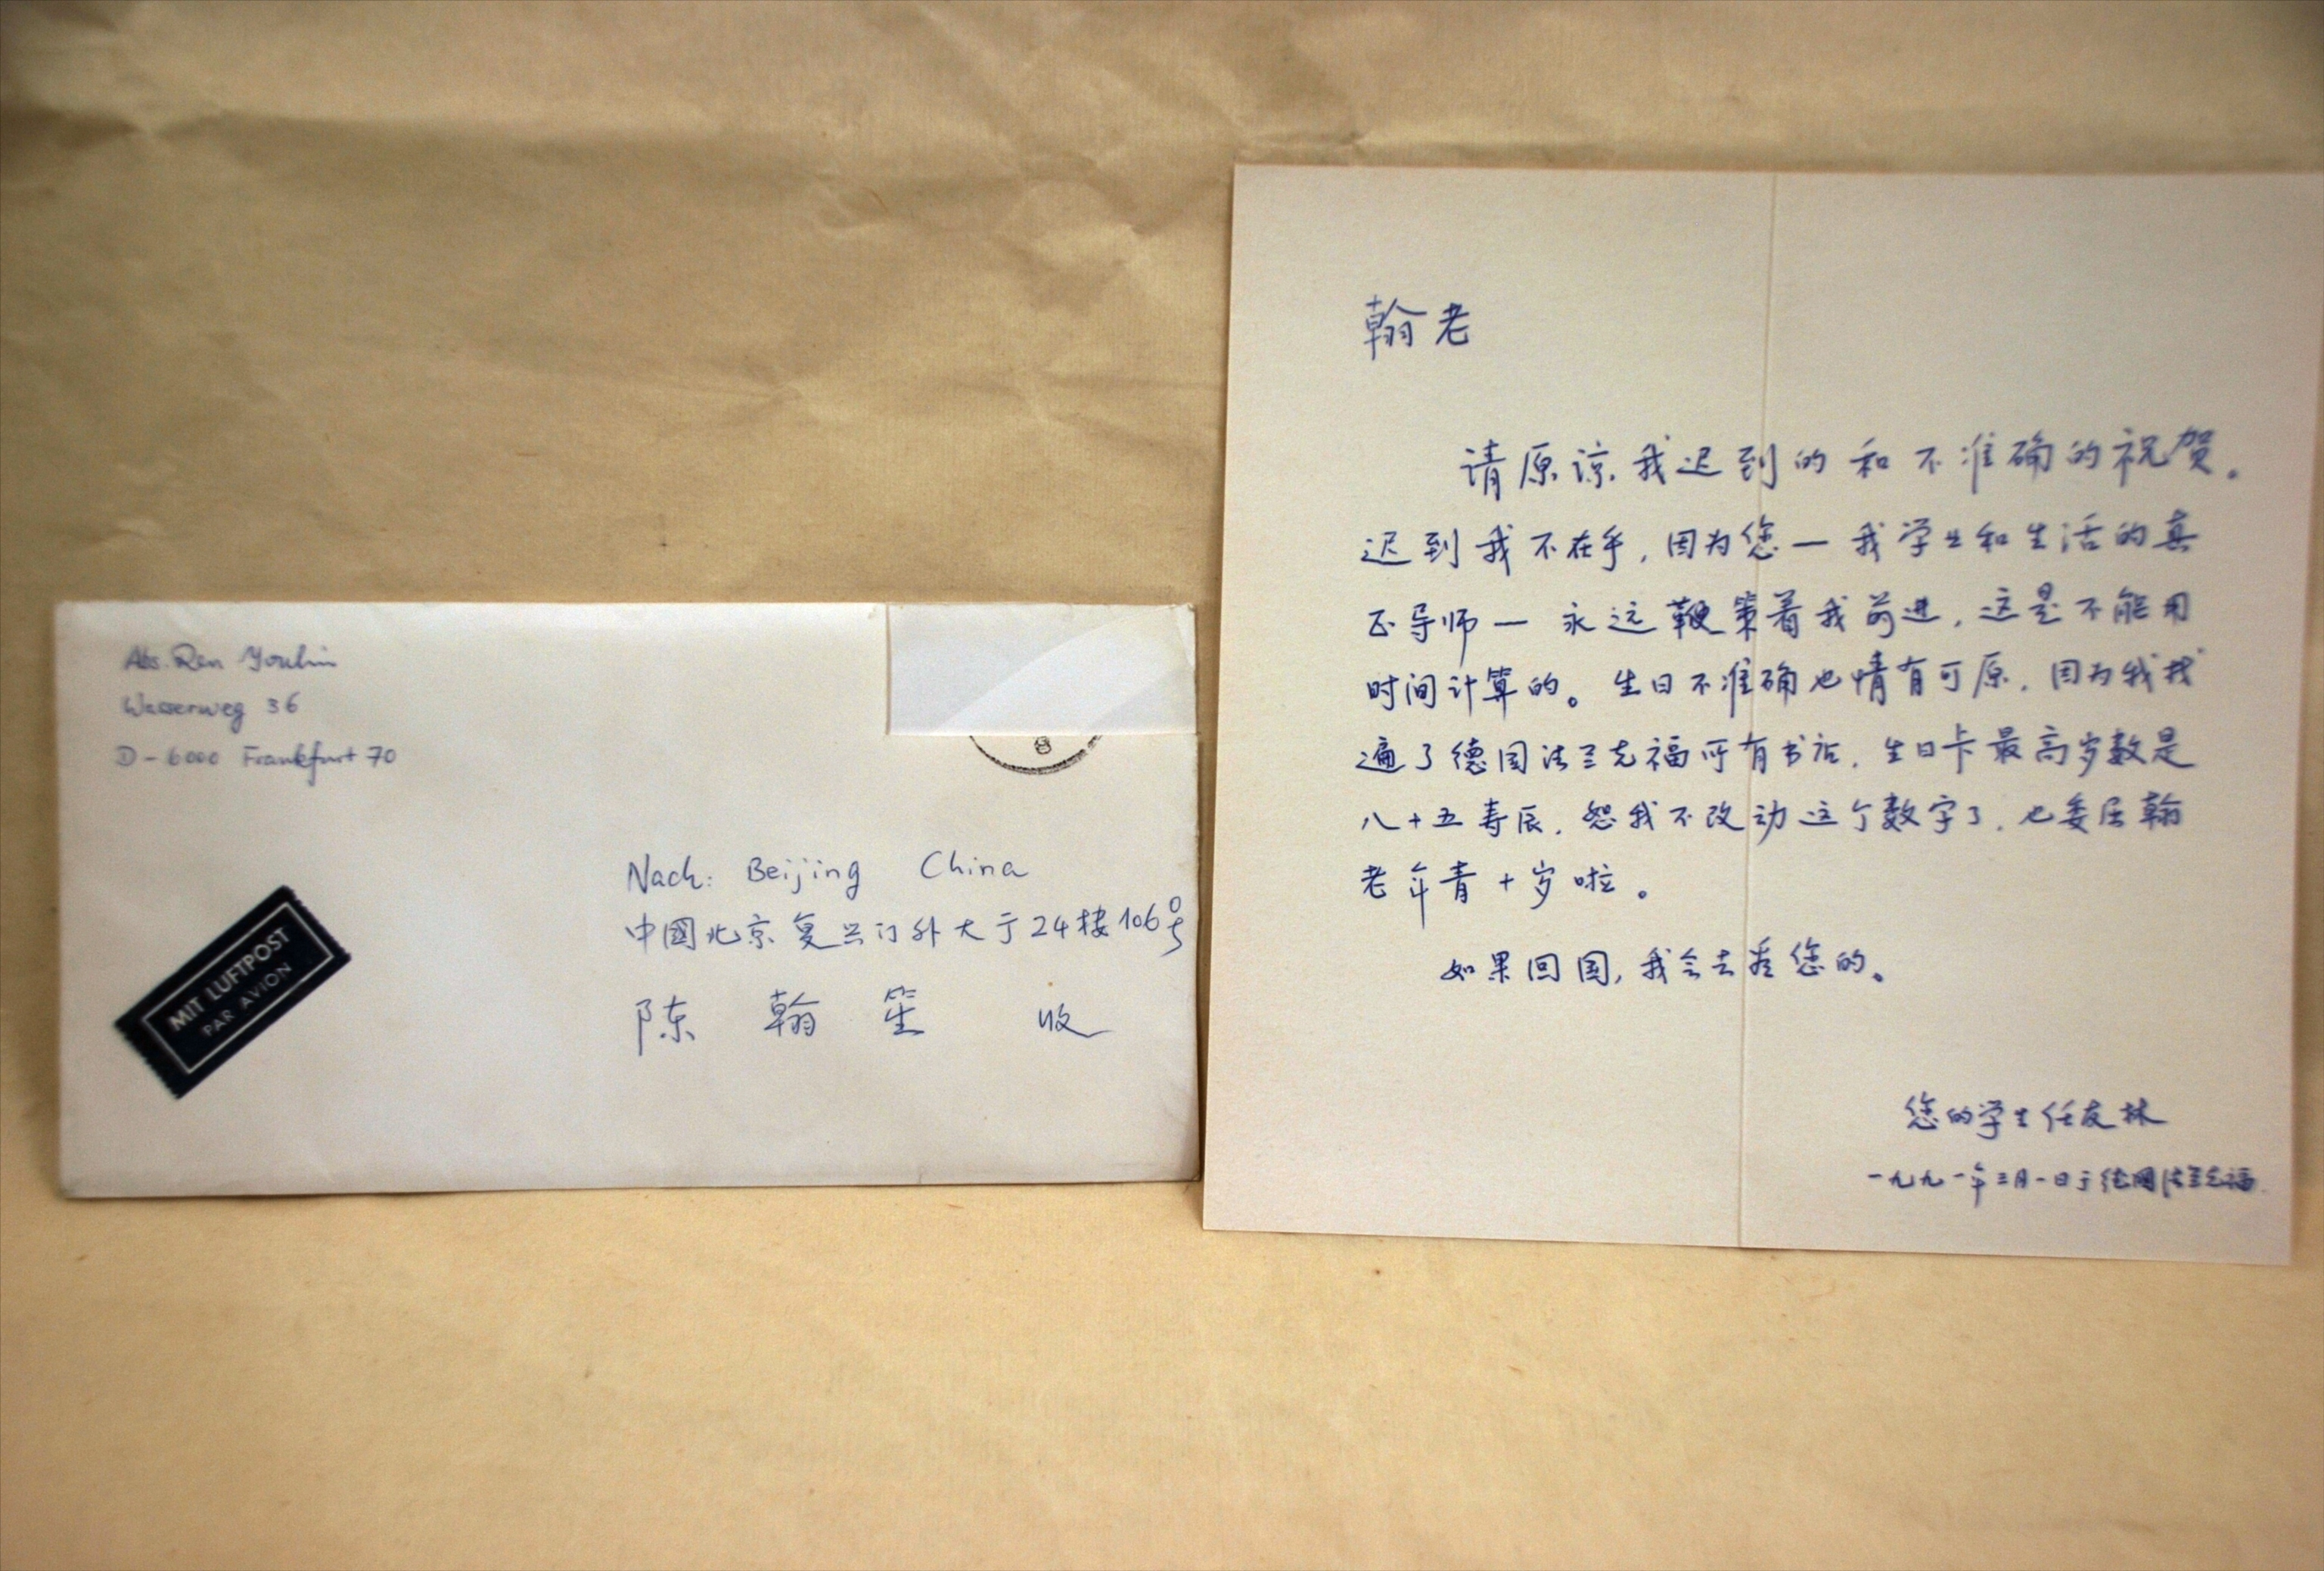 Abs. Ren Youlin
Wasserweg 36
D-6000 Frankfurt 70
8
MIT LUFTPOST
PAR AVION
Nach: Beijing China
中國北京复兴门外大于24楼106号
陈翰笙 收
翰老
请原谅我迟到的和不准确的祝贺。
迟到我不在乎，因为您一我学业和生活的真
正导师一永远鞭策着我前进，这是不能用
时间计算的。生日不准确也情有可原，因为我找
遍了德国法兰克福所有书店，生日卡最高岁数是
八十五寿辰，恕我不改动这个数字了，也委屈翰
老年青十岁啦。
如果回国，我会去看您的。
您的学生任友林
一九九一年三月一日于德国法兰克福